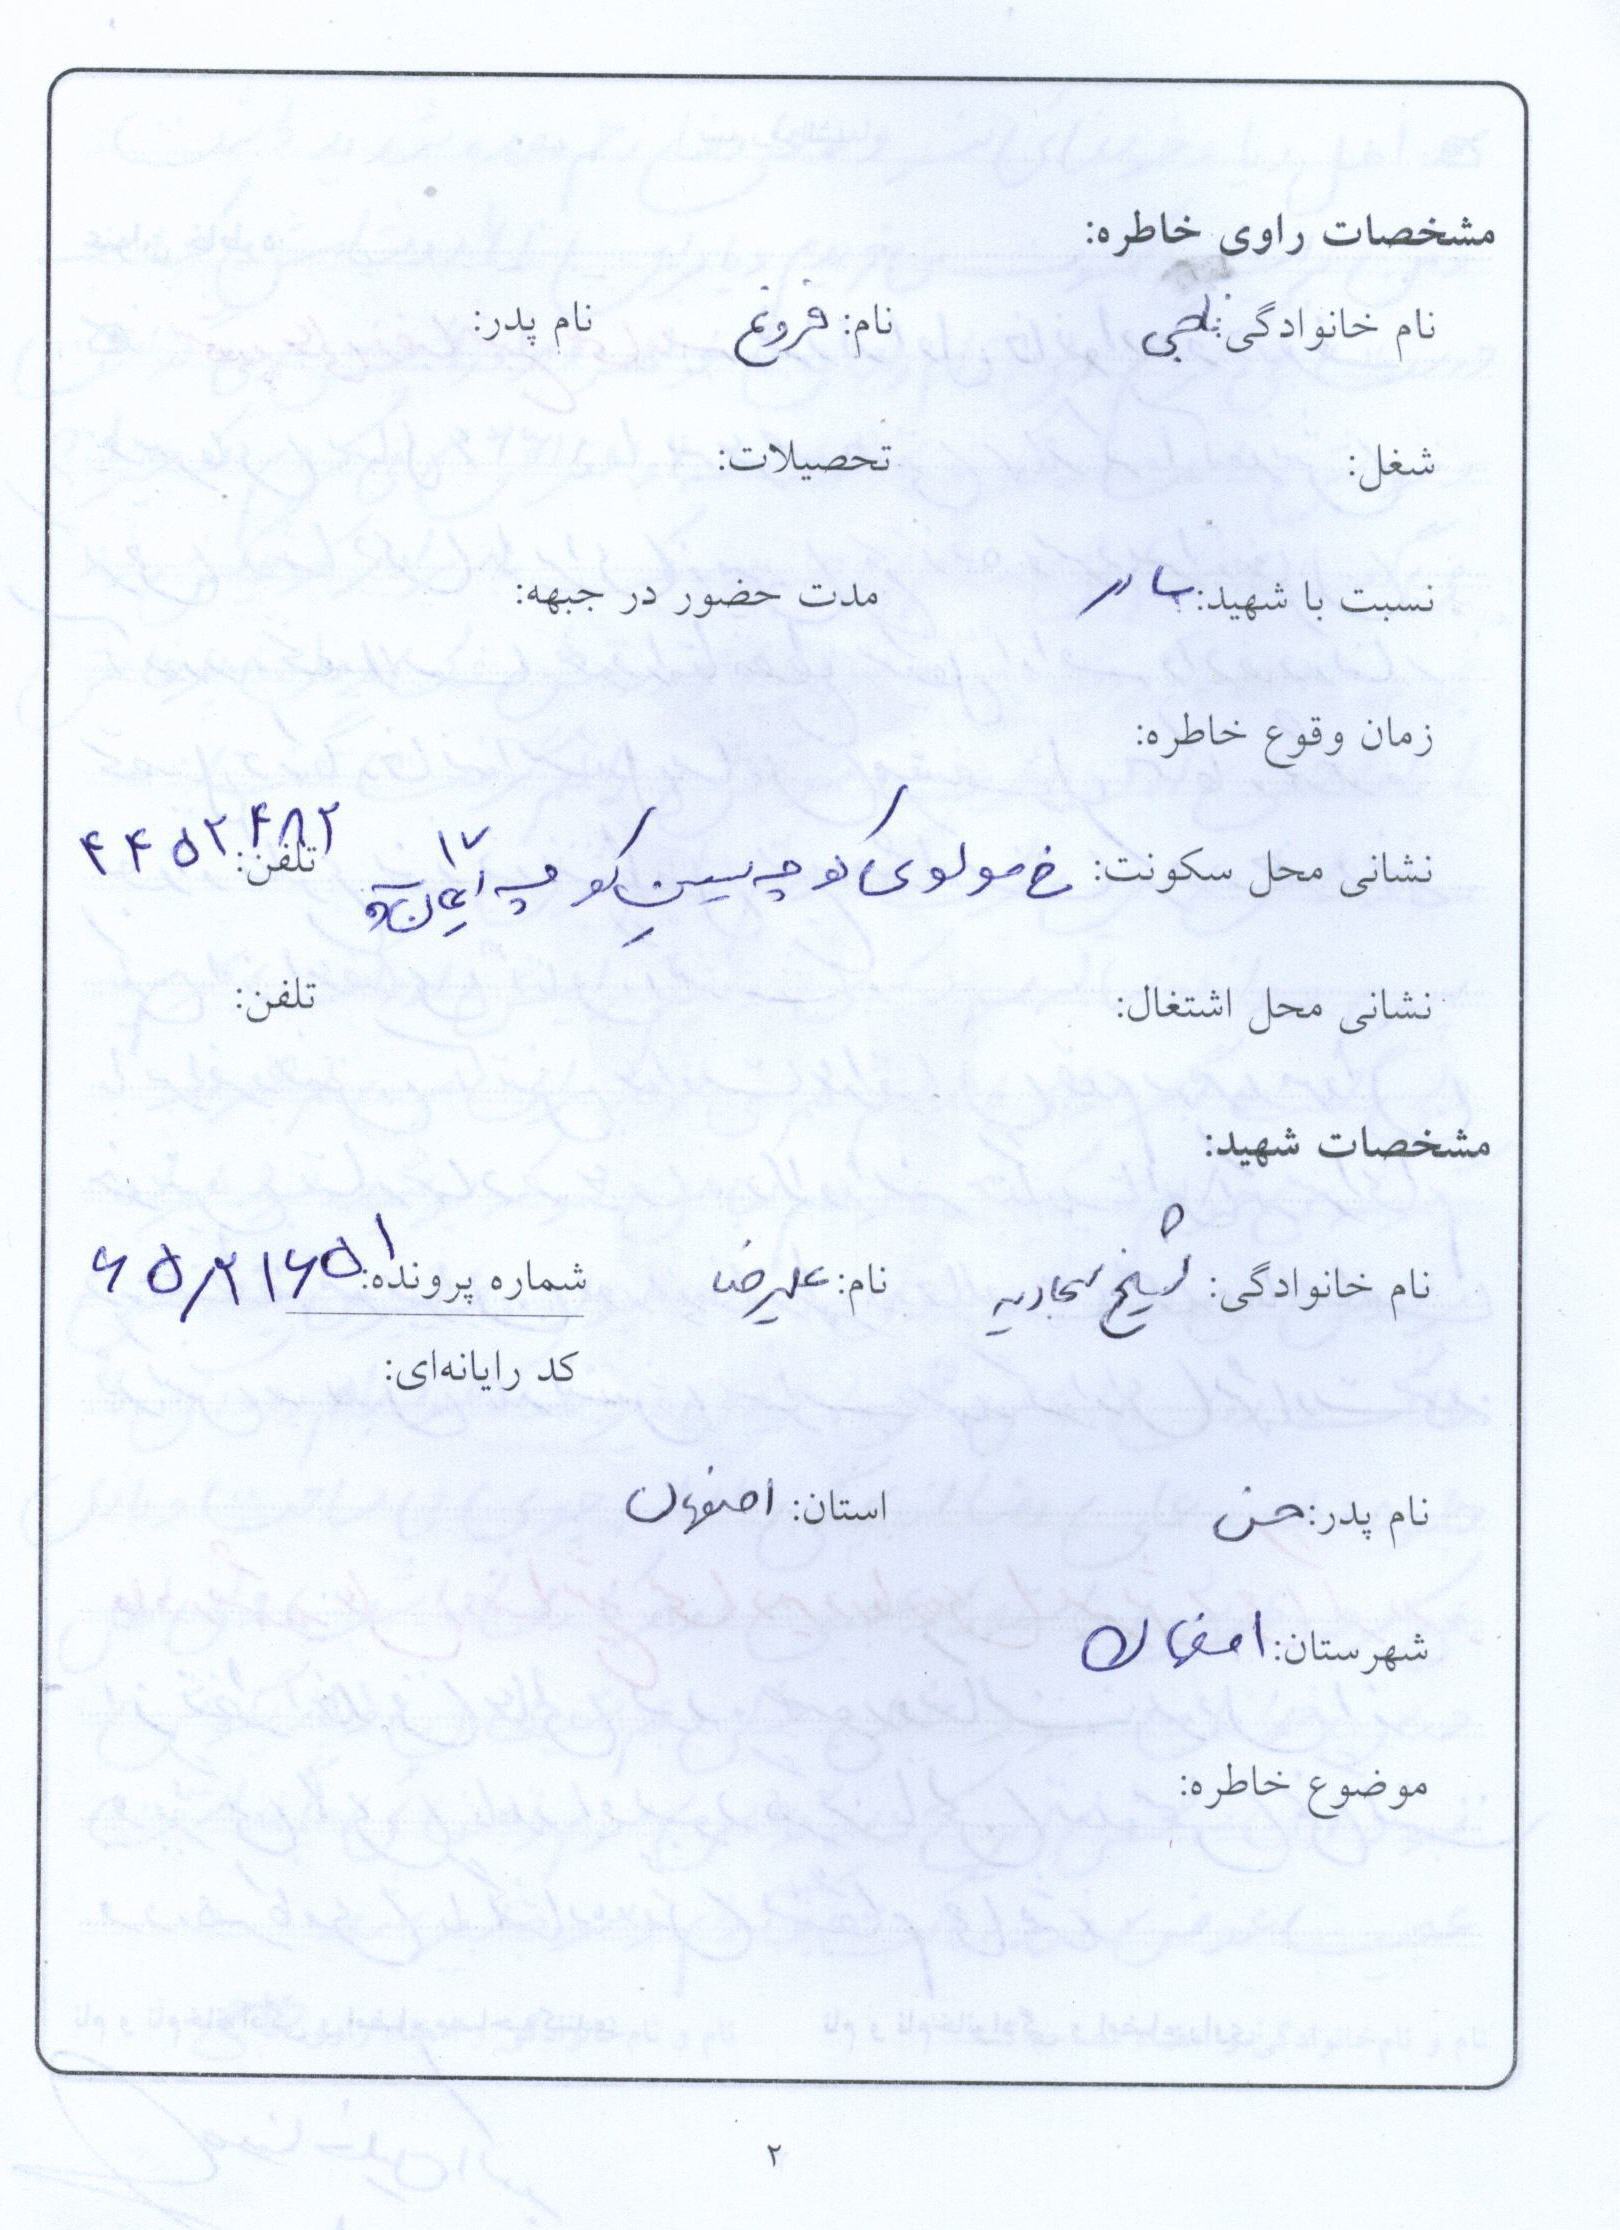 مشخصات راوی خاطره:
نام خانوادگی: ناجی نام: فروغ نام پدر:
شغل: تحصیلات:
نسبت با شهید: مادر مدت حضور در جبهه:
زمان وقوع خاطره:
نشانی محل سکونت: خ مولوی کوچه کوچه ۱۷ تلفن: ۴۴۵۲۴۸۲
نشانی محل اشتغال: تلفن:
مشخصات شهید:
نام خانوادگی: شیخ سجادیه نام: علیرضا شماره پرونده: ۶۵/۲۱۶۵۱
کد رایانه‌ای:
نام پدر: حسن استان: اصفهان
شهرستان: اصفهان
موضوع خاطره:
۲